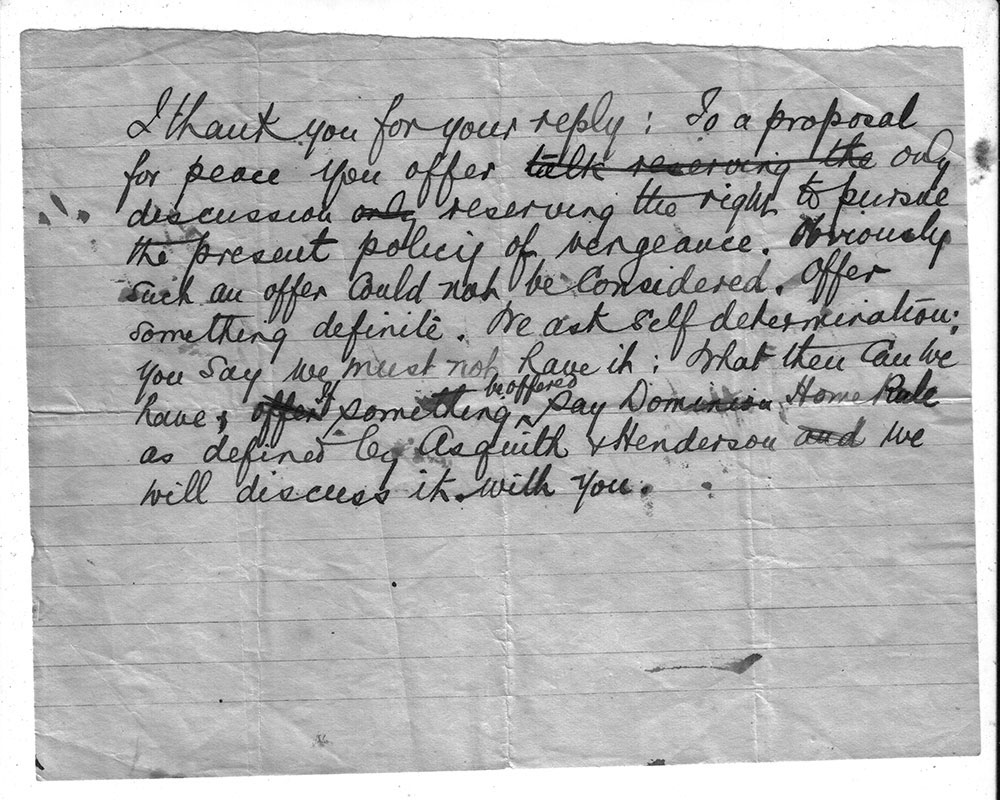 I thank you for your reply : To a proposal
for peace you offer talk reserving the only
discussion only reserving the right to pursue
the present policy of vengeance. Obviously
such an offer could not be considered. Offer
something definite. We ask self determination;
you say we must not have it : What then can we
be offered
have, offer if something say Dominion Home Rule
as defined by Asquith & Henderson and we
will discuss it with you.